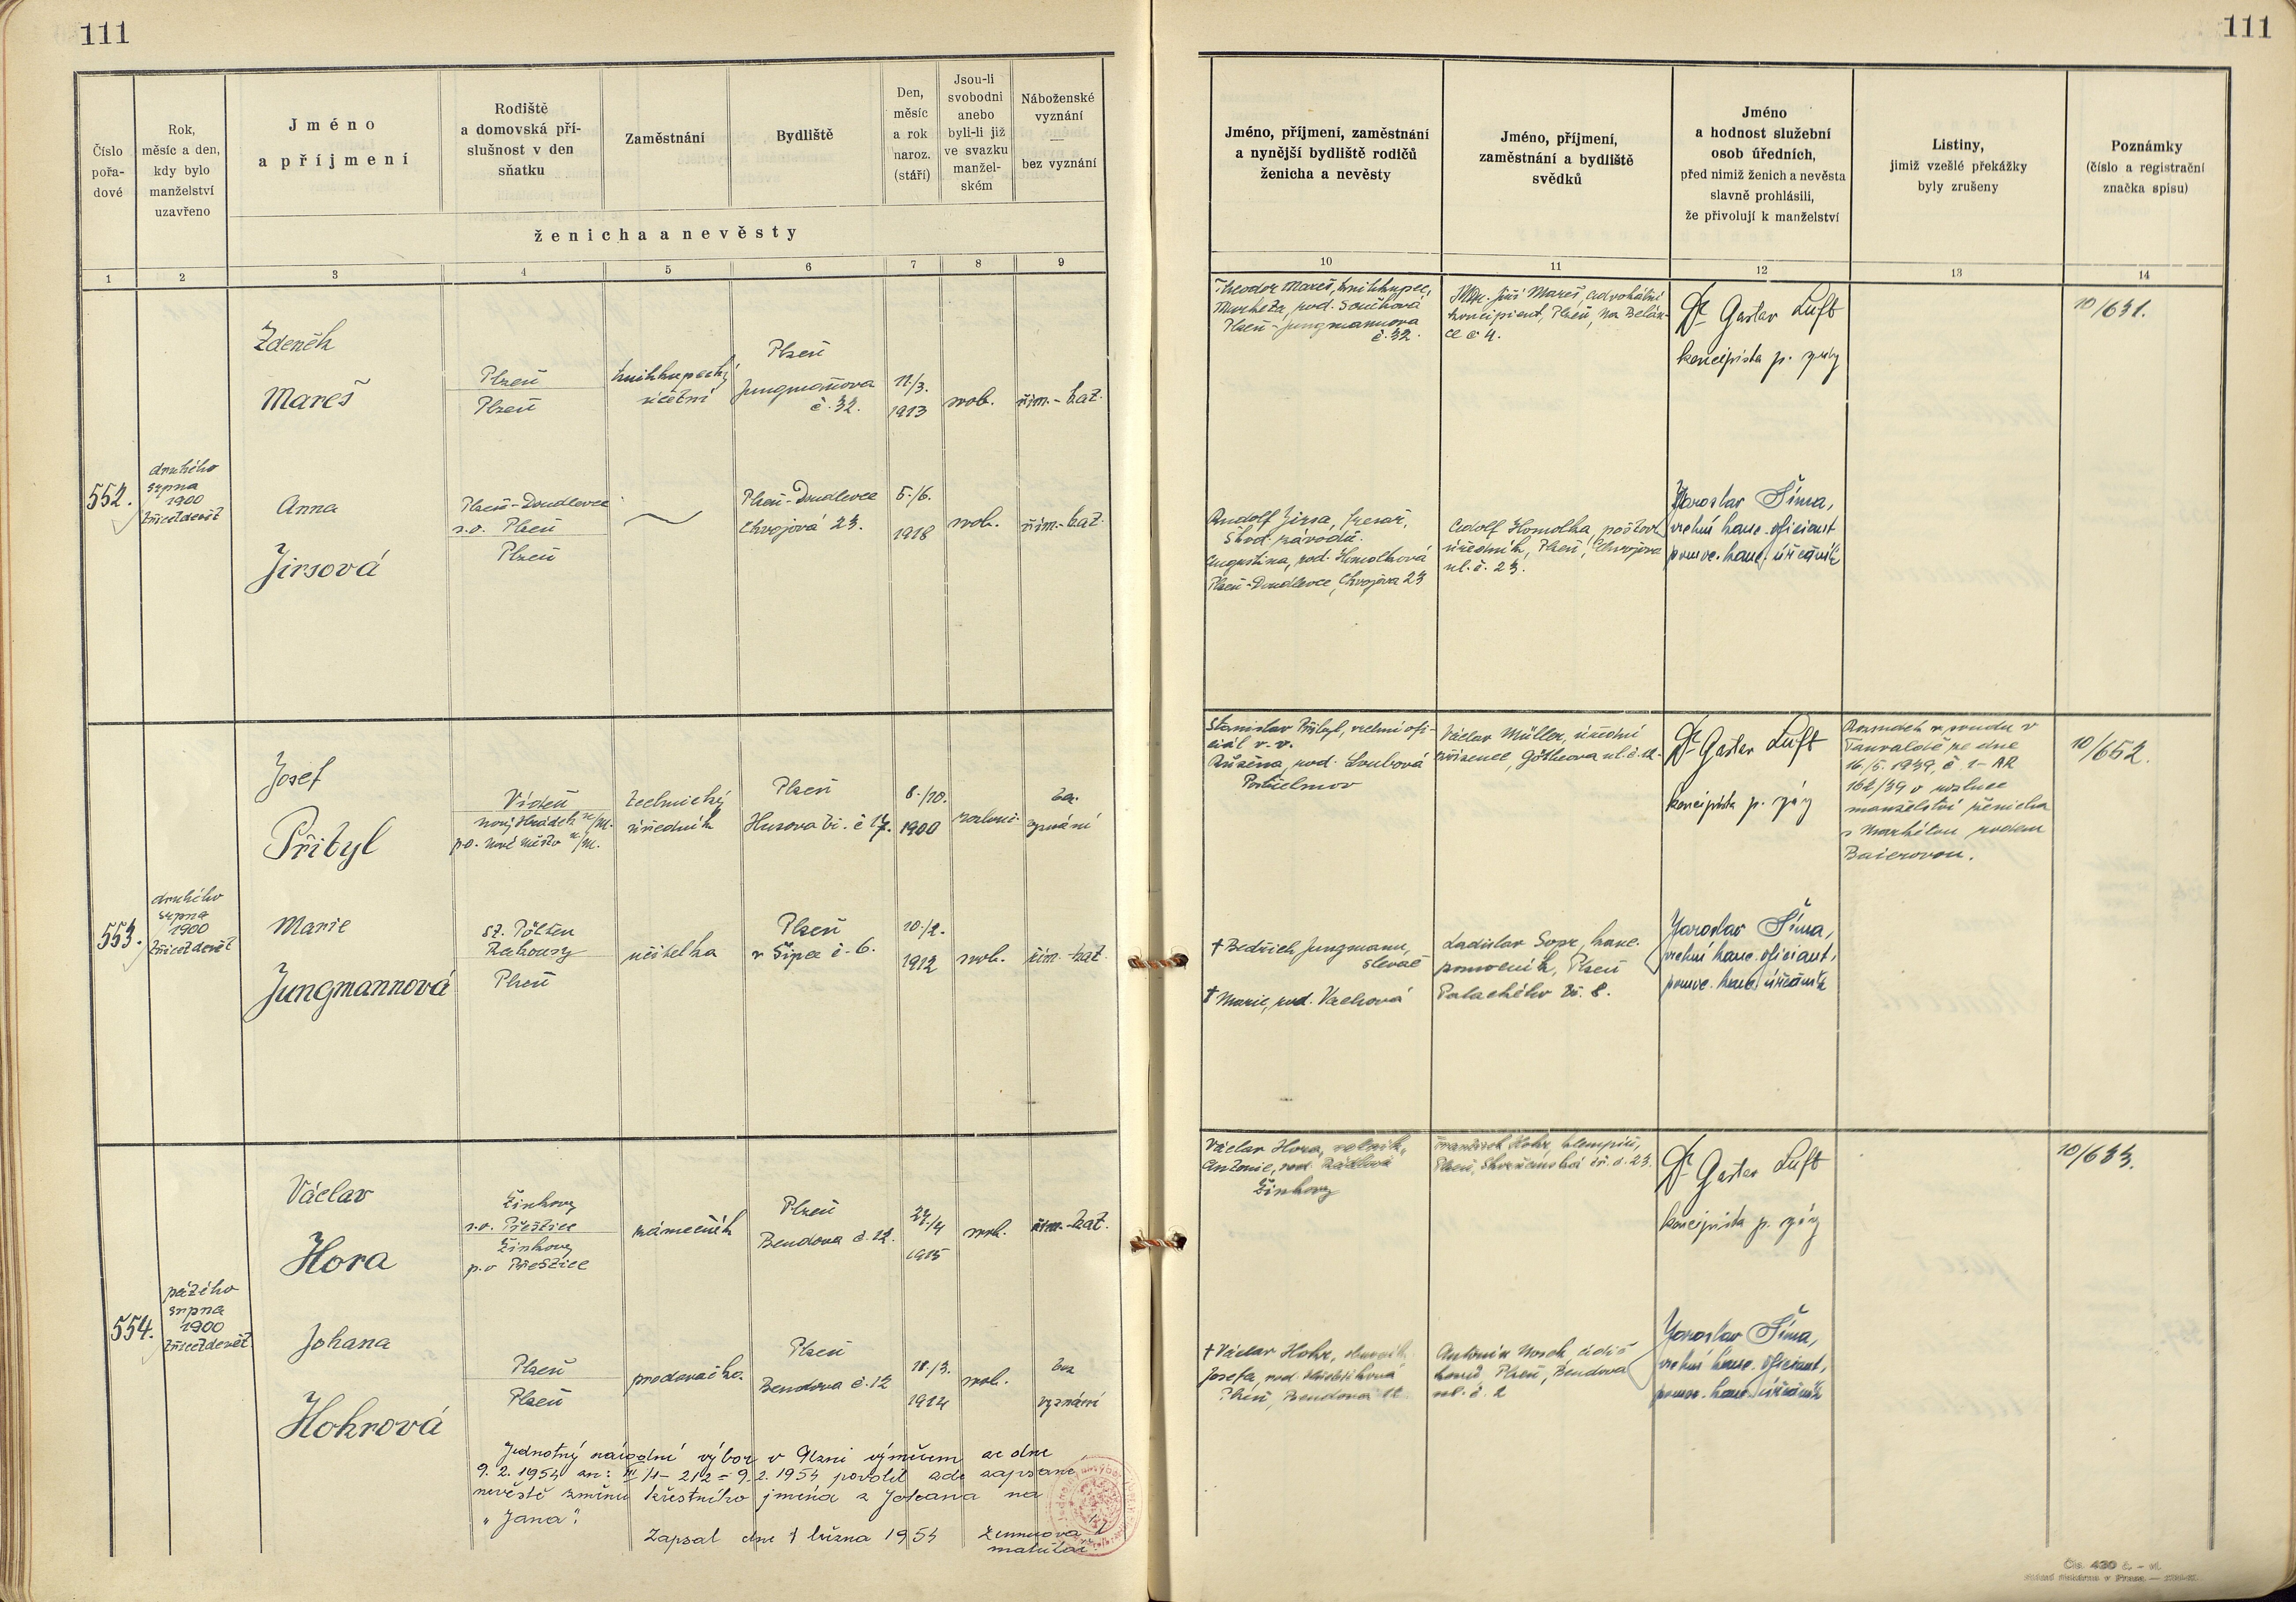 111
111
Číslo pořa-dové
Rok, měsíc a den, kdy bylo manželství uzavřeno
Jméno a příjmení
Rodiště a domovská pří-slušnost v den sňatku
Zaměstnání
Bydliště
Den, měsíc a rok naroz. (stáří)
Jsou-li svobodni anebo byli-li již ve svazku manžel-ském
Náboženské vyznání — bez vyznání
ženicha a nevěsty
Jméno, příjmení, zaměstnání a nynější bydliště rodičů ženicha a nevěsty
Jméno, příjmení, zaměstnání a bydliště svědků
Jméno a hodnost služební osob úředních, před nimiž ženich a nevěsta slavně prohlásili, že přivolují k manželství
Listiny, jimiž vzešlé překážky byly zrušeny
Poznámky (číslo a registrační značka spisu)
1 2 3 4 5 6 7 8 9 10 11 12 13 14
552.
druhého
srpna
1900
třicetdevět
Zdeněk
Mareš
Plzeň
Plzeň
knihkupecký
účetní
Plzeň
Jungmañova
č. 32.
11/3.
1913
svob.
řím.-kat.
Theodor Mareš, knihkupec,
Markéta, rod. Součková
Plzeň - Jungmannova
č. 32.
JUDr. Jiří Mareš, advokátní
koncipient, Plzeň, Na Belán-
ce č 4.
Dr Gustav Luft
koncipista p. správy
10/631.
Anna
Jirsová
Plzeň-Doudlevce
s.o. Plzeň
Plzeň
Plzeň-Doudlevce
Chvojová 23.
5./6.
1918
svob.
řím.-kat.
Rudolf Jirsa, fresař,
Škod. závodů.
Augustina, rod. Homolková
Plzeň-Doudlevce, Chvojova 23
Adolf Homolka, poštov.
úředník, Plzeň, Chvojova
ul. č. 23.
Jaroslav Šíma,
vrchní kanc. oficiant
pomoc. kanc. úředník
553.
druhého
srpna
1900
třicetdevět
Josef
Přibyl
Vídeň
Nový Hrádek n/M.
p.o. Nové Město n/M.
technický
úředník
Plzeň
Husova tř. č 17.
8./10.
1900
rozluč.
bez
vyznání
Stanislav Přibyl, vrchní ofi-
ciál v. v.
Růžena, rod. Loubová
Postřelmov
Václav Müller, úřední
zřízenec, Götheova ul. č. 12.
Dr Gustav Luft
koncipista p. správy
Rozsudek kr. soudu v
Tanvaldě ze dne
16/5. 1939, č. 1- AR
162/39 o rozluce
manželství ženicha
s Markétou rodem
Baierovou.
10/652.
Marie
Jungmannová
St. Pölten
Rakousy
Plzeň
učitelka
Plzeň
v Šipce č. 6.
10./2.
1912
svob.
řím.-kat.
† Bedřich Jungmann,
slevač
† Marie, rod. Vachová
Ladislav Sopr, kanc.
pomocník, Plzeň
Palackého tř. 8.
Jaroslav Šíma,
vrchní kanc. oficiant,
pomoc. kanc. úředník
554.
pátého
srpna
1900
třicetdevět
Václav
Hora
Žinkovy
s.o. Přeštice
Žinkovy
p.o Přeštice
zámečník
Plzeň
Bendova č. 12.
27/4
1915
svob.
řím.-kat.
Václav Hora, rolník,
Antonie, rod. Rádlová
Žinkovy
František Hokr, klempíř,
Plzeň, Skvrňanská tř. č. 23.
Dr Gustav Luft
koncipista p. správy
10/633.
Johana
Hokrová
Plzeň
Plzeň
prodavačka
Plzeň
Bendova č. 12
18./3.
1914
svob.
bez
vyznání
† Václav Hokr,
Josefa, rod.
Plzeň, Bendova 12
Antonín Nosek, řidič
Plzeň, Bendova
ul. č. 2
Jaroslav Šíma,
vrchní kanc. oficiant,
pomoc. kanc. úředník
Jednotný národní výbor v Plzni výměrem ze dne
9. 2. 1954 zn: III/1- 212 = 9.2. 1954 povolil zde zapsané
nevěstě změnu křestního jména z Johana na
"Jana".
Zapsal dne 1 března 1954
matrikář